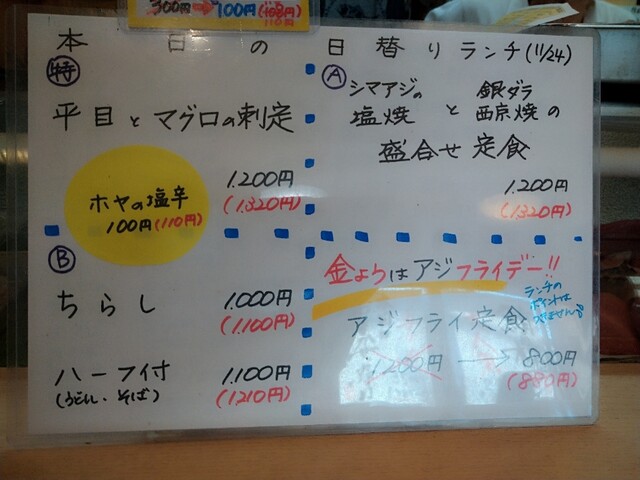 300円→100円(110円)
本日の日替りランチ(11/24)
特
平目とマグロの刺定
1.200円
(1.320円)
ホヤの塩辛
100円(110円)
A
シマアジの塩焼と銀ダラ西京焼の
盛合せ定食
1.200円
(1320円)
B
ちらし
1.000円
(1.100円)
ハーフ付
(うどん・そば)
1.100円
(1210円)
金ようはアジフライデー!!
ランチの
ポイントは
アジフライ定食
1200円→800円
(880円)